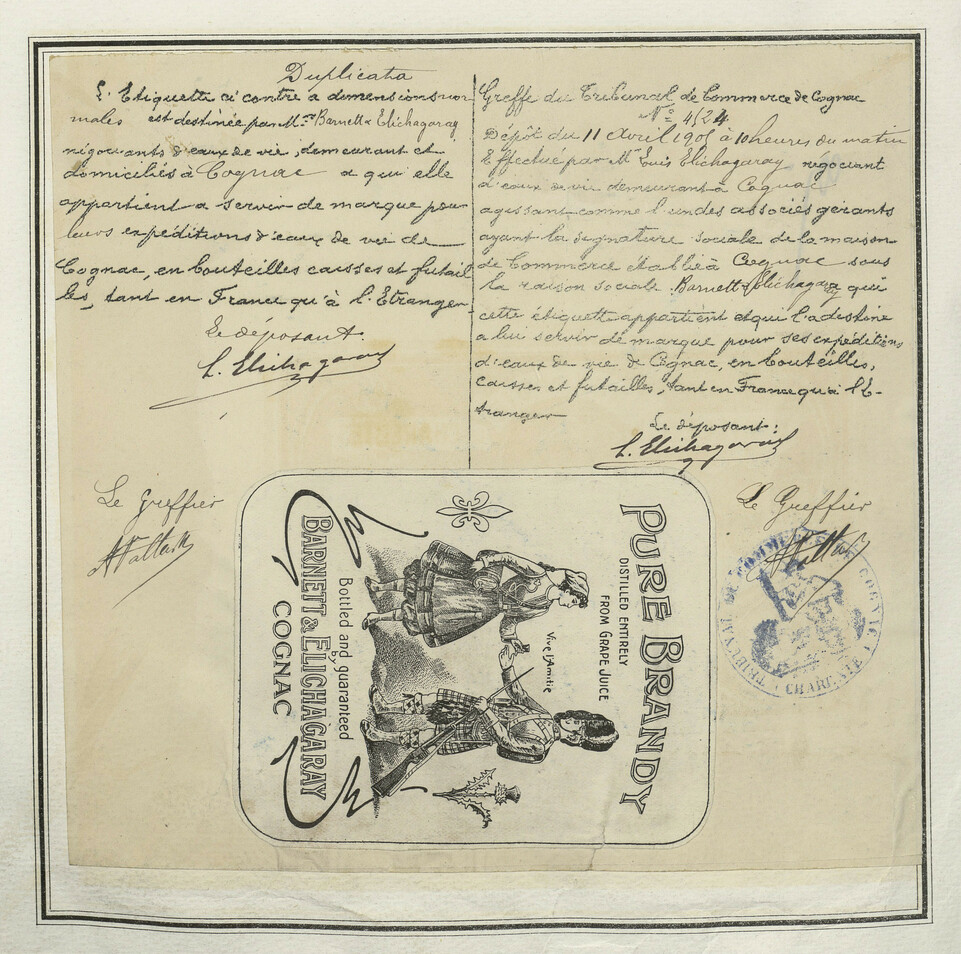 Duplicata
L'Etiquette ci contre a dimensions nor
males est destinée par Mrs Barnett & Elichagaray
négociants d'eaux de vie, demeurant et
domiciliés à Cognac a qui elle
appartient a servir de marque pour
leurs expéditions d'eaux de vie de
Cognac, en bouteilles caisses et futail
les, tant en France qu'à l'Etranger
Le déposant.
L. Elichagaray
Le Greffier
Greffe du Tribunal de Commerce de Cognac
No 4524
Dépôt du 11 Avril 1905 à 10 heures du matin
Effectué par Mr Louis Elichagaray négociant
d'eaux de vie demeurant à Cognac
agissant comme l'un des associés gérants
ayant la signature sociale de la maison
de Commerce établie à Cognac sous
la raison sociale Barnett & Elichagaray qui
cette étiquette appartient et qui l'a destine
a lui servir de marque pour ses expéditions
d'eaux de vie de Cognac, en bouteilles,
caisses et futailles, tant en France qu'à l'E-
tranger
Le déposant:
L. Elichagaray
Le Greffier
TRIBUNAL DE COMMERCE DE COGNAC
CHARENTE
PURE BRANDY
DISTILLED ENTIRELY
FROM GRAPE JUICE
Vive l'Amitie
Bottled and guaranteed
by
BARNETT & ELICHAGARAY
COGNAC